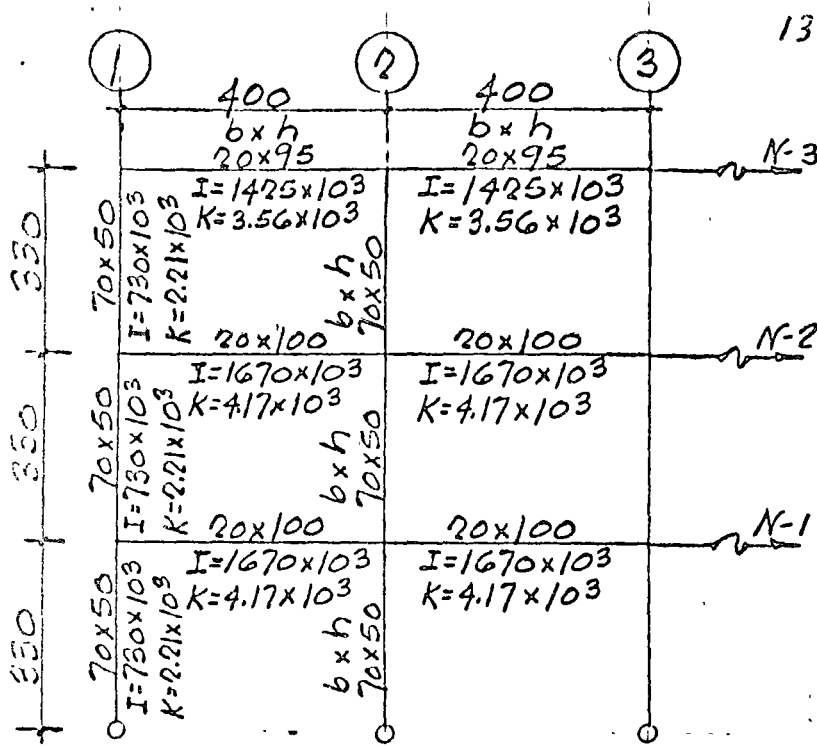 13
1 2 3
400 400
b x h
20x95 20x95 N-3
I=1425x10³ I=1425x10³
K=3.56x10³ K=3.56x10³
330
70x50
I=730x10³
K=2.21x10³
b x h
70x50
20x100 20x100 N-2
I=1670x10³ I=1670x10³
K=4.17x10³ K=4.17x10³
330
70x50
I=730x10³
K=2.21x10³
b x h
70x50
20x100 20x100 N-1
I=1670x10³ I=1670x10³
K=4.17x10³ K=4.17x10³
330
70x50
I=730x10³
K=2.21x10³
b x h
70x50